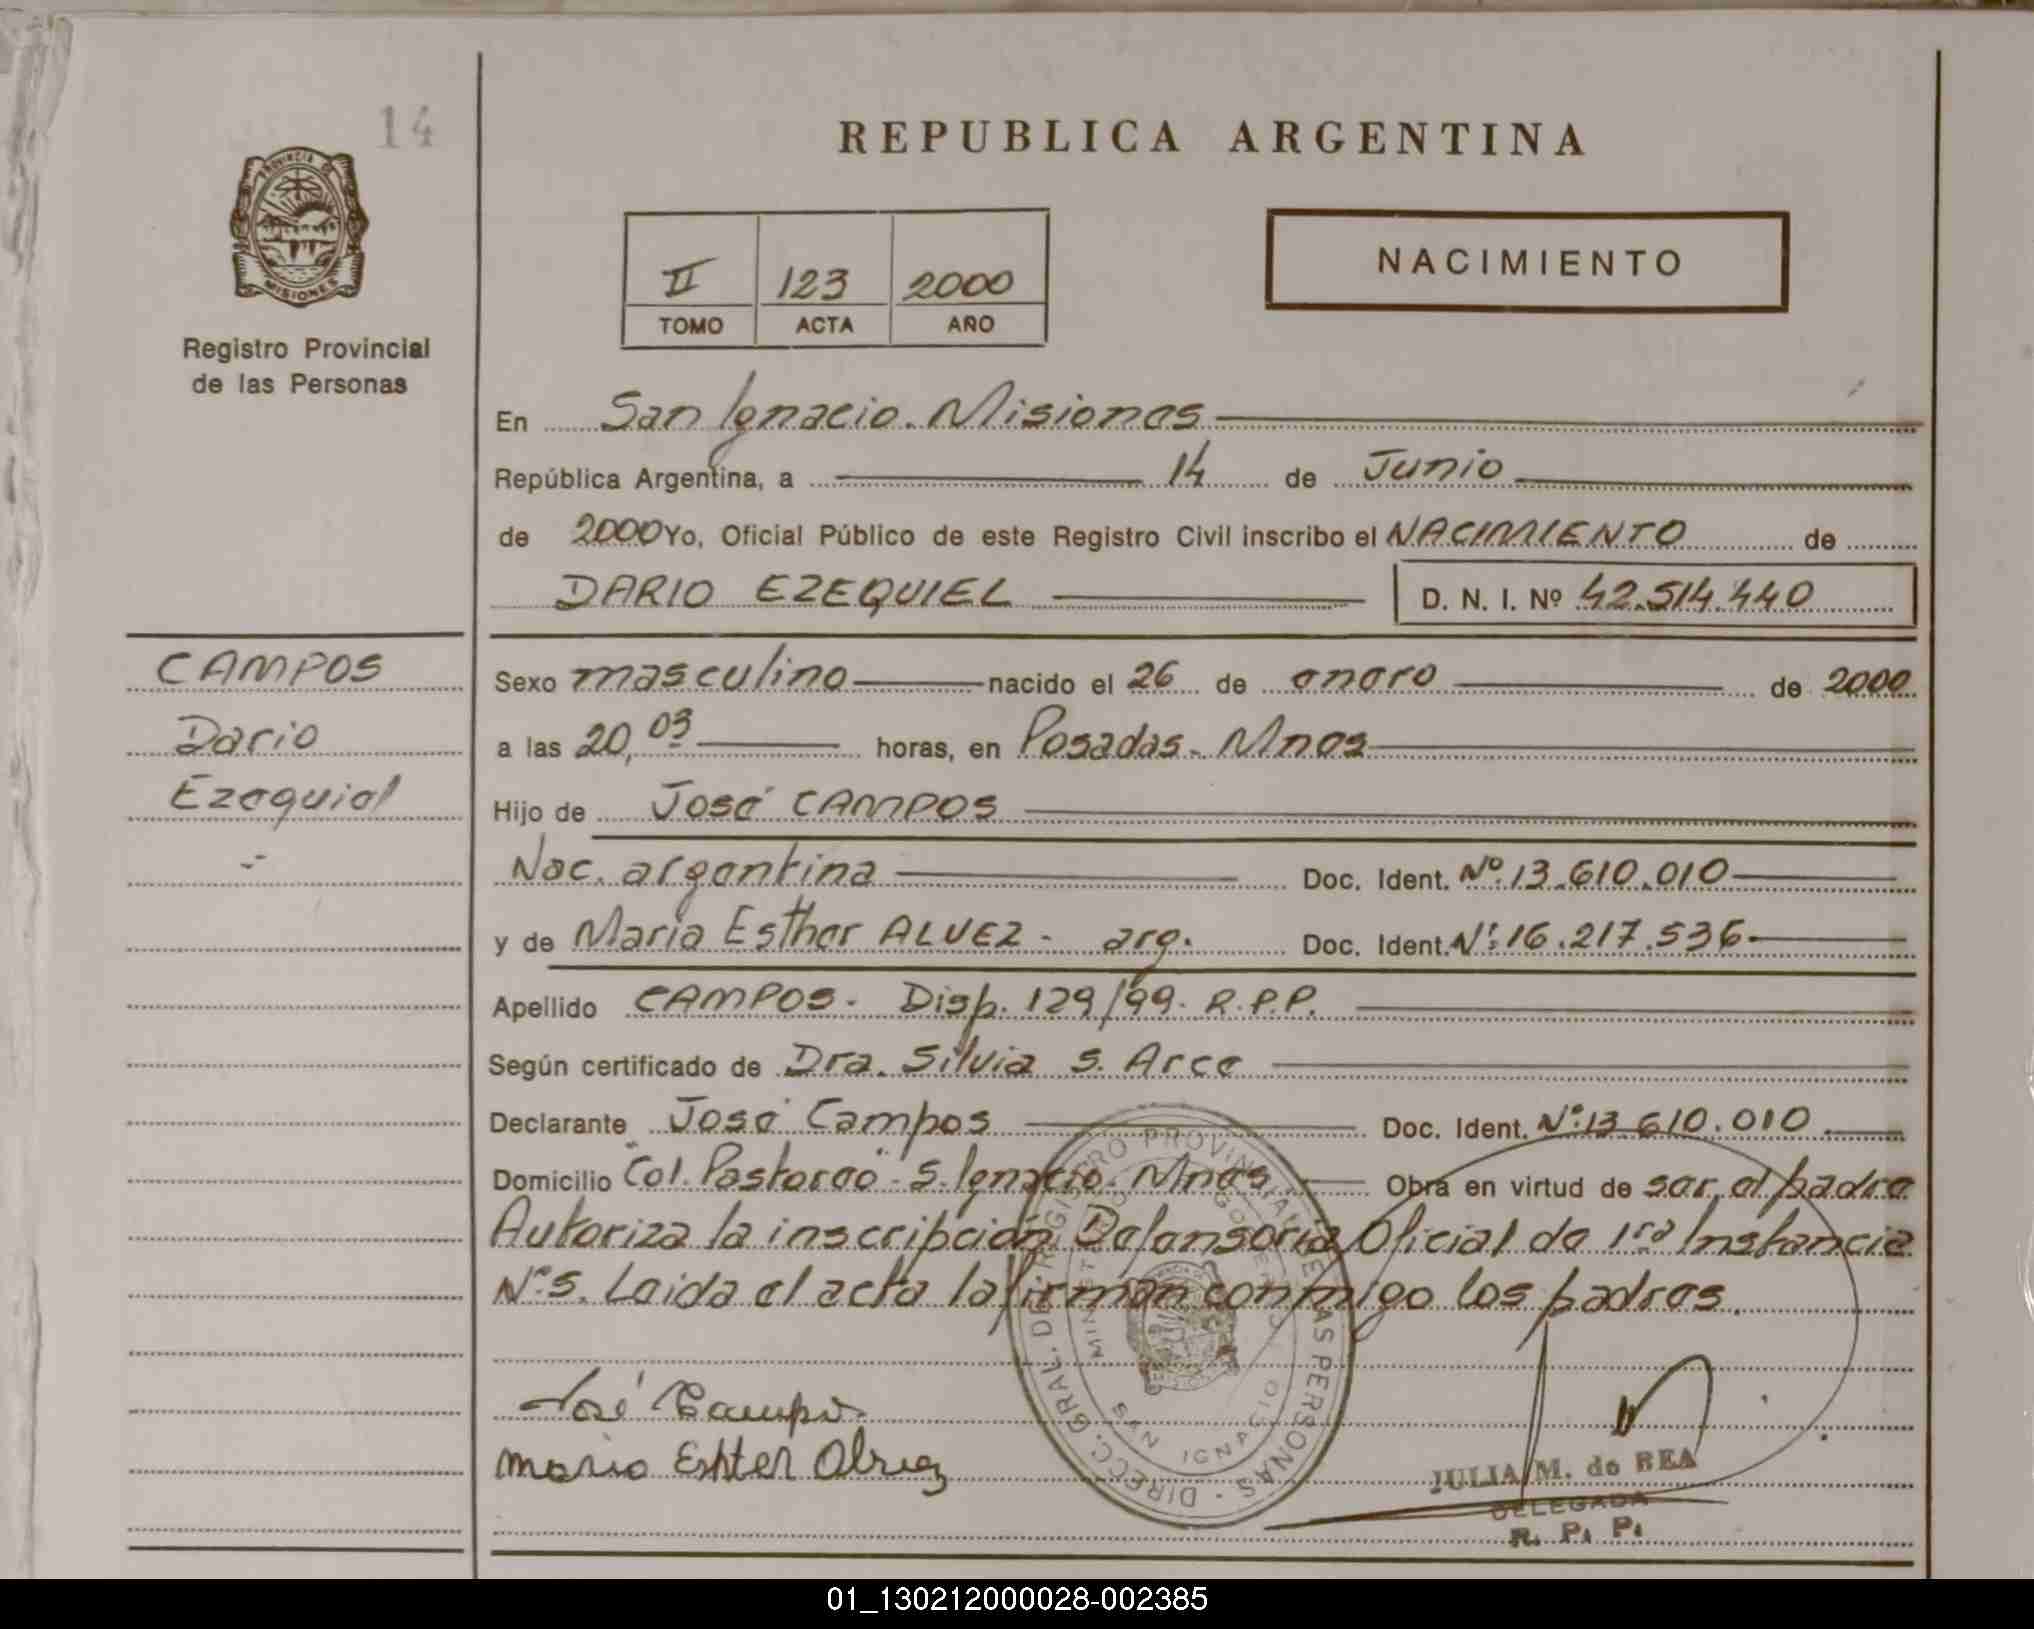 14
REPUBLICA ARGENTINA
PROVINCIA DE
MISIONES
Registro Provincial
de las Personas
II 123 2000
TOMO ACTA AÑO
NACIMIENTO
En San Ignacio. Misiones
República Argentina, a 14 de Junio
de 2000 Yo, Oficial Público de este Registro Civil inscribo el NACIMIENTO de
DARIO EZEQUIEL D. N. I. Nº 42.514.440
CAMPOS
Dario
Ezequiel
Sexo masculino nacido el 26 de enero de 2000
a las 20,03 horas, en Posadas. Mnes
Hijo de José CAMPOS
Nac. argentina Doc. Ident. Nº 13.610.010
y de Maria Esther ALVEZ - arg. Doc. Ident. Nº 16.217.536
Apellido CAMPOS. Disp. 129/99. R.P.P.
Según certificado de Dra. Silvia S. Arce
Declarante José Campos Doc. Ident. Nº 13.610.010
Domicilio Col. Pastoreo - S. Ignacio. Mnes Obra en virtud de ser el padre
Autoriza la inscripción Defensoria Oficial de 1ra Instancia
Nº 5. Leida el acta la firman conmigo los padres.
José Campos
maria Esther Alvez
DIRECC. GRAL. DE REGISTRO PROVINCIAL DE LAS PERSONAS
MINISTERIO GOBIERNO
SAN IGNACIO
JULIA M. de BEA
DELEGADA
R. P. P.
01_130212000028-002385